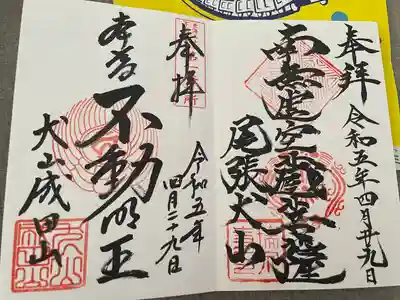 奉拝
令和五年四月廿九日
南無虚空蔵菩薩
尾張犬山
奉拝
令和五年
四月二十九日
本尊不動明王
犬山成田山